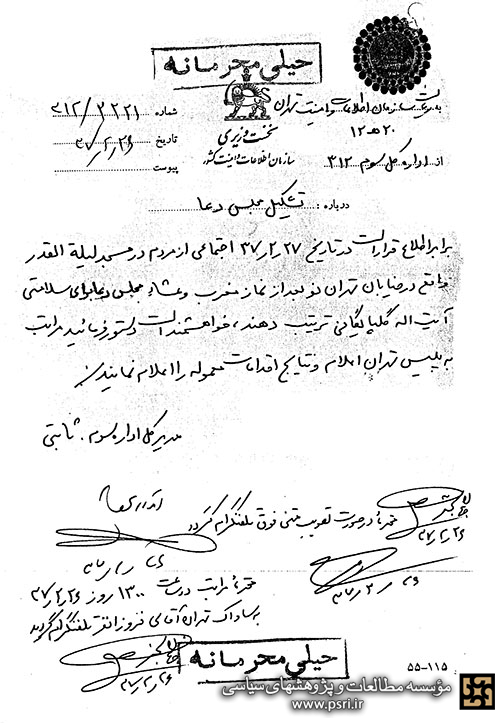 خیلی محرمانه
به ریاست سازمان اطلاعات و امنیت تهران
۲۰ هـ ۱۲
از اداره کل سوم ۳۱۲
نخست وزیری
سازمان اطلاعات و امنیت کشور
شماره ۳۱۲/۲۲۲۱
تاریخ ۳۷/۲/۲۶
پیوست
درباره : تشکیل مجلس دعا
برابر اطلاع قرار است در تاریخ ۳۷/۲/۲۷ اجتماعی از مردم در مسجد لیلة القدر
واقع در خیابان تهران نو بعد از نماز مغرب و عشاء مجلس دعا برای سلامتی
آیت اله گلپایگانی ترتیب دهند، خواهشمند است دستور فرمائید مراتب
به پلیس تهران اعلام و نتایج اقدامات معموله را اعلام نمایند.
مدیر کل اداره سوم . ثابتی
محترماً در صورت تصویب متن فوق تلفنگرام گردد
۳۷/۲/۲۶
محترماً مراتب در ساعت ۱۳۰۰ روز ۳۷/۲/۲۶
به ساواک تهران آقای فروزانفر تلفنگرام گردید
۳۷/۲/۲۶
خیلی محرمانه
۵۵-۱۱۵
مؤسسه مطالعات و پژوهشهای سیاسی
www.psri.ir